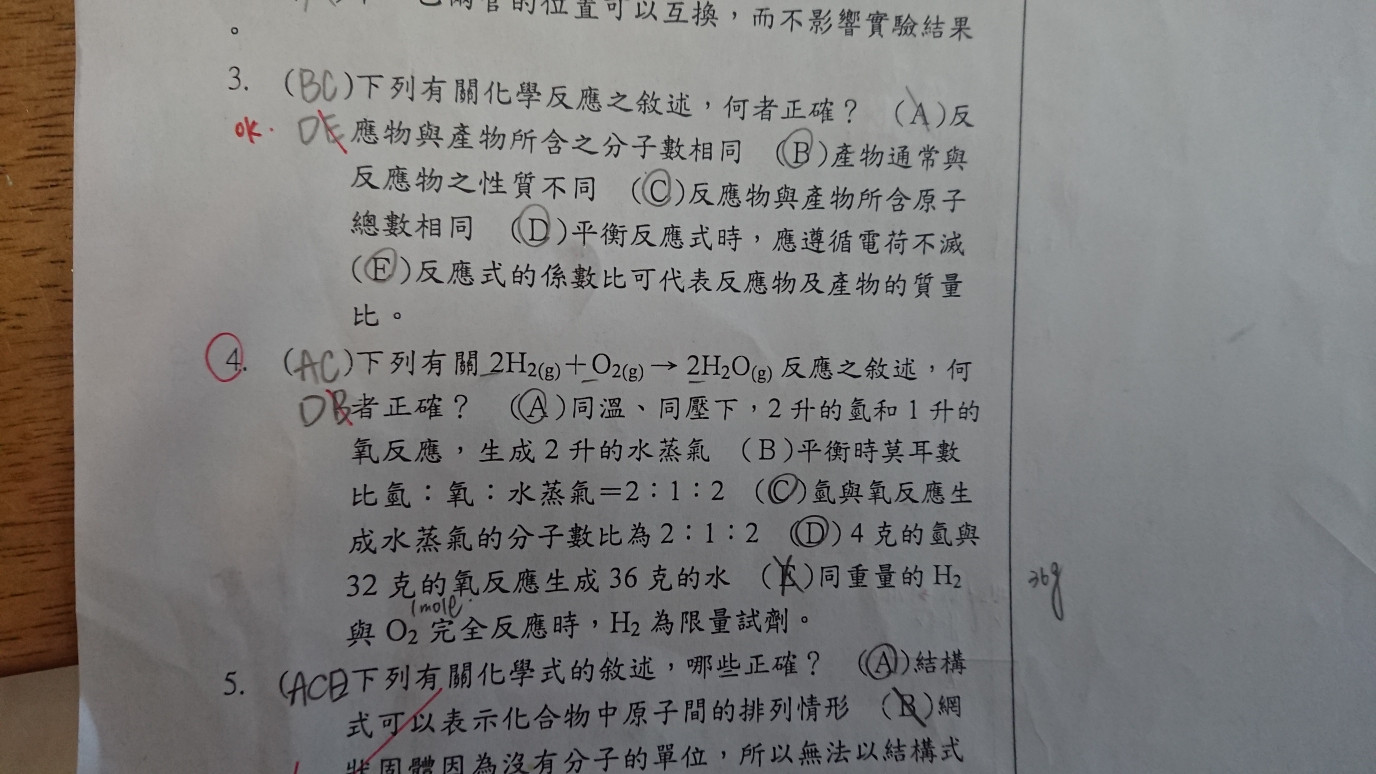 的位置可以互換，而不影響實驗結果
。
3. (BC)下列有關化學反應之敘述，何者正確？ (A)反
ok. DE 應物與產物所含之分子數相同 (B)產物通常與
反應物之性質不同 (C)反應物與產物所含原子
總數相同 (D)平衡反應式時，應遵循電荷不滅
(E)反應式的係數比可代表反應物及產物的質量
比。
4. (AC)下列有關 2H2(g)+O2(g)→2H2O(g) 反應之敘述，何
D 者正確？ (A)同溫、同壓下，2 升的氫和 1 升的
氧反應，生成 2 升的水蒸氣 (B)平衡時莫耳數
比氫：氧：水蒸氣=2：1：2 (C)氫與氧反應生
成水蒸氣的分子數比為 2：1：2 (D) 4 克的氫與
32 克的氧反應生成 36 克的水 (E)同重量的 H2
36g
1mole.
與 O2 完全反應時，H2 為限量試劑。
5. (ACE下列有關化學式的敘述，哪些正確？ (A)結構
式可以表示化合物中原子間的排列情形 (B)網
狀固體因為沒有分子的單位，所以無法以結構式